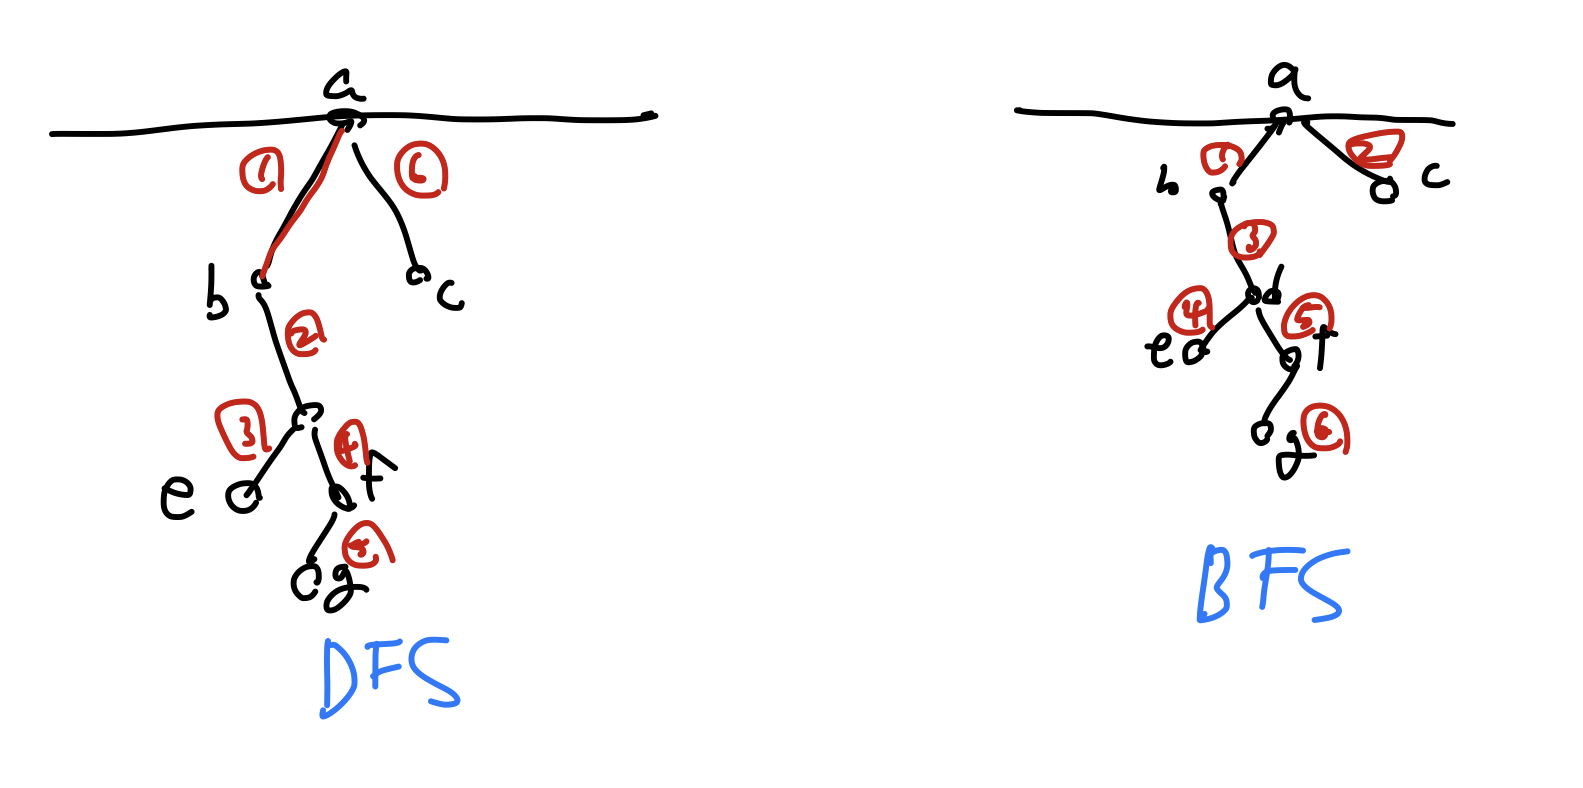 a
① ⑥
b c
②
③ ④ f
e
⑤
g
DFS
a
① ②
b c
③
d
④ ⑤
e f
⑥
g
BFS